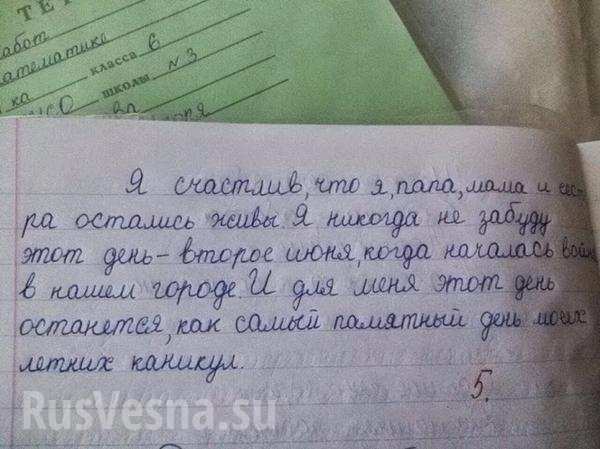 ТЕТ
абот
атематике
ка класса 6
школы №3
Я счастлив, что я, папа, мама и сест-
ра остались живы. Я никогда не забуду
этот день – второе июня, когда началась война
в нашем городе. И для меня этот день
останется, как самый памятный день моих
летних каникул.
5.
RusVesna.su